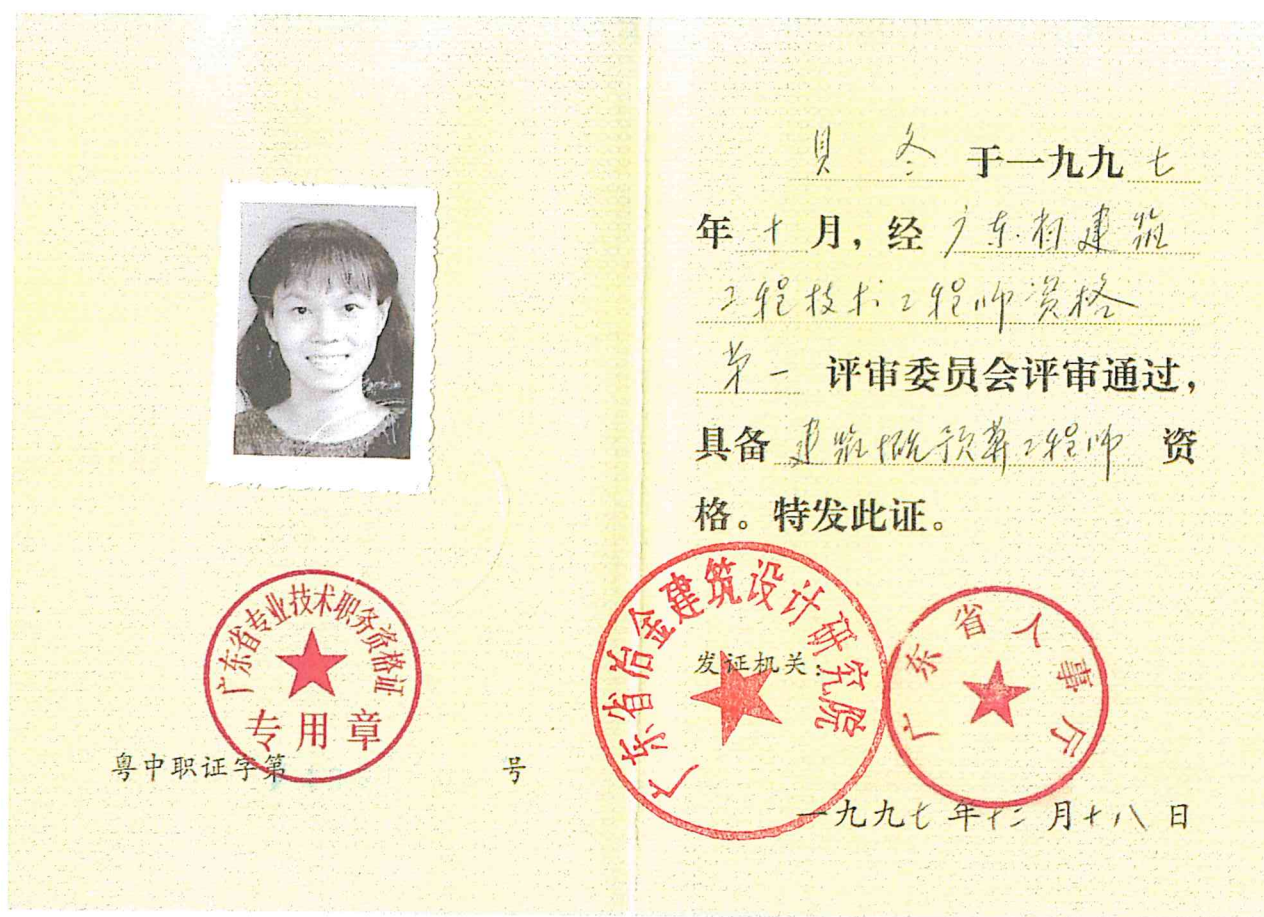 粤中职证字第 号
广东省专业技术职务资格证
专用章
冬 于一九九七
年十月，经广东省建筑
工程技术工程师资格
第一 评审委员会评审通过，
具备 建筑概预算工程师 资
格。特发此证。
发证机关：
广东省冶金建筑设计研究院
广东省人事厅
一九九七年十二月十八日